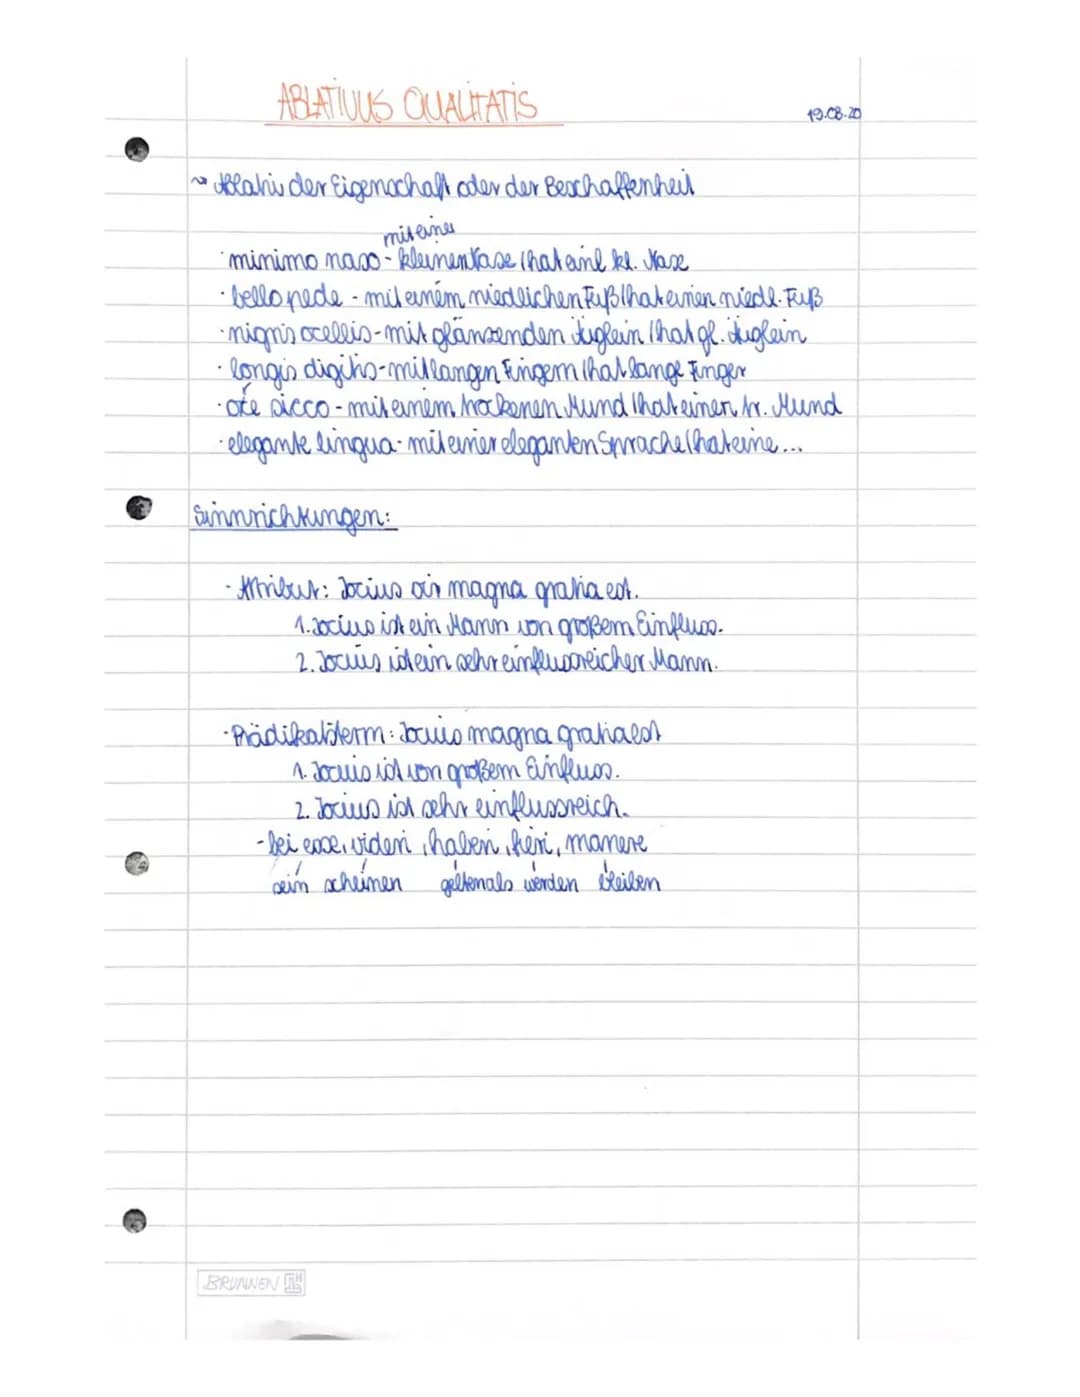 ABLATIVUS QUALITATIS
19.08.20
~> Ablativ der Eigenschaft oder der Beschaffenheit
mit einer
· minimo naso - kleinen Nase / hat eine kl. Nase
· bello pede - mit einem niedlichen Fuß / hat einen niedl. Fuß
· nigris ocellis - mit glänzenden Äuglein / hat gl. Äuglein
· longis digitis - mit langen Fingern / hat lange Finger
· ore sicco - mit einem trockenen Mund / hat einen tr. Mund
· elegante lingua - mit einer eleganten Sprache / hat eine ...
Sinnrichtungen:
- Attribut: Socius vir magna gratia est.
1. Socius ist ein Mann von großem Einfluss.
2. Socius ist ein sehr einflussreicher Mann.
· Prädikatsterm: Socius magna gratia est
1. Socius ist von großem Einfluss.
2. Socius ist sehr einflussreich.
- bei esse, videri, haberi, fieri, manere
sein scheinen gelten als werden bleiben
BRUNNEN